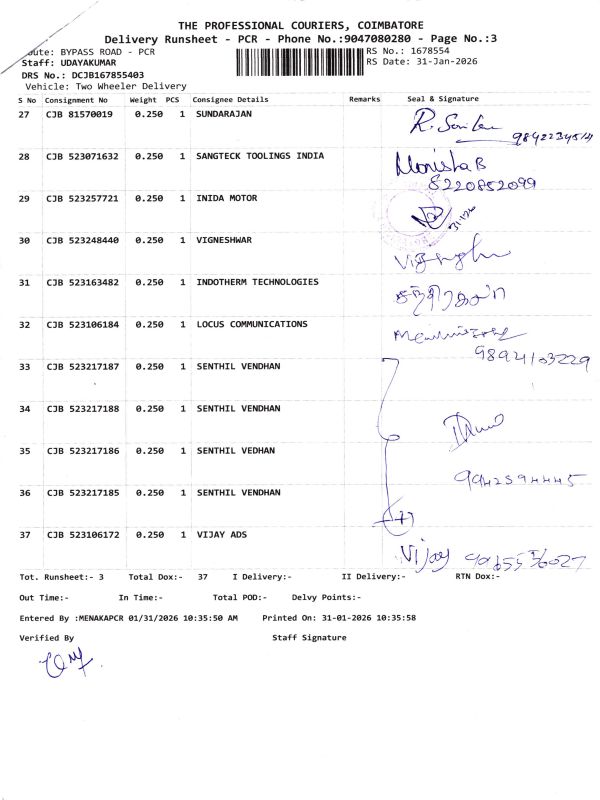 THE PROFESSIONAL COURIERS, COIMBATORE
Delivery Runsheet - PCR - Phone No.:9047080280 - Page No.:3
oute: BYPASS ROAD - PCR
RS No.: 1678554
Staff: UDAYAKUMAR
RS Date: 31-Jan-2026
DRS No.: DCJB167855403
Vehicle: Two Wheeler Delivery
S No Consignment No Weight PCS Consignee Details Remarks Seal & Signature
27 CJB 81570019 0.250 1 SUNDARAJAN
28 CJB 523071632 0.250 1 SANGTECK TOOLINGS INDIA Monisha B
8220852099
29 CJB 523257721 0.250 1 INIDA MOTOR
30 CJB 523248440 0.250 1 VIGNESHWAR
31 CJB 523163482 0.250 1 INDOTHERM TECHNOLOGIES
32 CJB 523106184 0.250 1 LOCUS COMMUNICATIONS
9894103229
33 CJB 523217187 0.250 1 SENTHIL VENDHAN
34 CJB 523217188 0.250 1 SENTHIL VENDHAN
35 CJB 523217186 0.250 1 SENTHIL VEDHAN
9942394445
36 CJB 523217185 0.250 1 SENTHIL VENDHAN
37 CJB 523106172 0.250 1 VIJAY ADS
Vijay
Tot. Runsheet:- 3 Total Dox:- 37 I Delivery:- II Delivery:- RTN Dox:-
Out Time:- In Time:- Total POD:- Delvy Points:-
Entered By :MENAKAPCR 01/31/2026 10:35:50 AM Printed On: 31-01-2026 10:35:58
Verified By Staff Signature